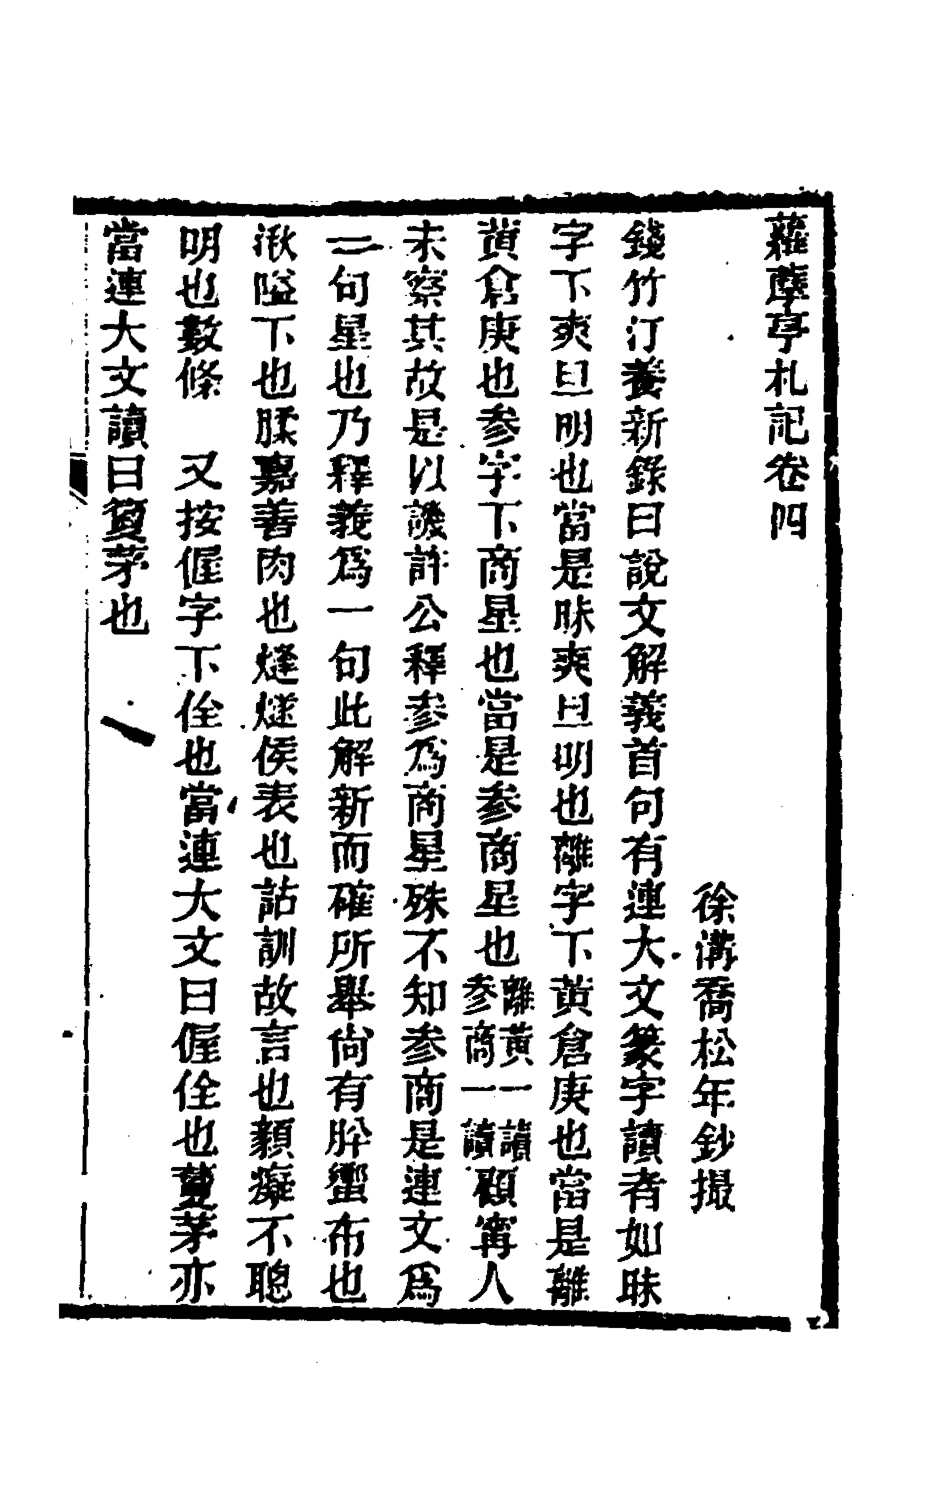 蘿藦亭札記卷四
徐溝喬松年鈔撮
錢竹汀養新錄曰說文解義首句有連大文篆字讀者如昧
字下爽旦明也當是昧爽旦明也離字下黃倉庚也當是離
黃倉庚也参字下商星也當是参商星也離黃一讀参商一讀顧寗人
未察其故是以譏許公釋参爲商星殊不知参商是連文爲
一句星也乃釋義爲一句此解新而確所舉尙有肸蠁布也
湫隘下也腬嘉善肉也㷭燧侯表也詁訓故言也顡癡不聰
明也數條　又按偓字下佺也當連大文曰偓佺也藑茅亦
當連大文讀曰藑茅也